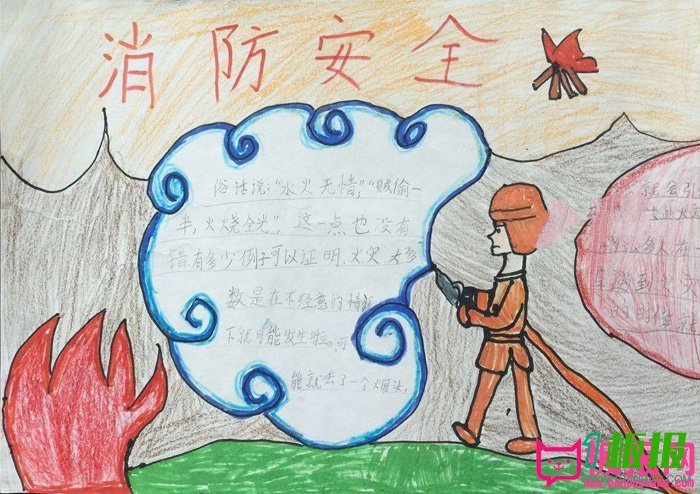 消防安全
俗话说："水火无情","贼偷一
半,火烧全光"。这一点也没有
错.有多少例子可以证明.火灾.大多
数是在不经意的情况
下就可能发生啦。可
能就丢了一个烟头,
就会引
多人在
板报